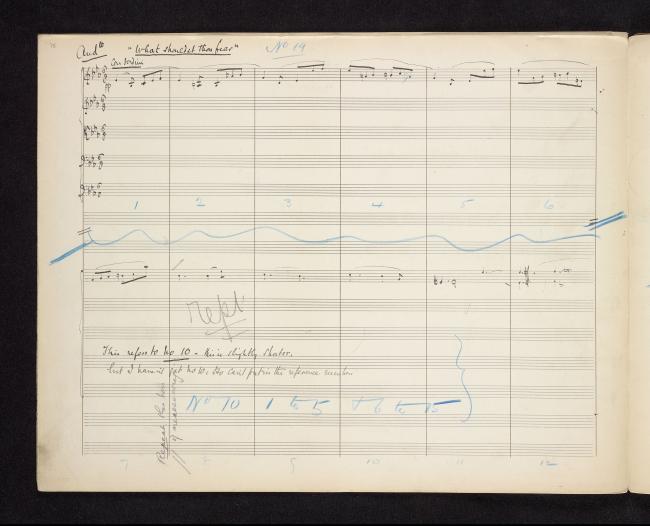 And^te "What shouldst thou fear" No 19
Con Sordini
pp
1 2 3 4 5 6
rept
This refers to No 10 - this is slightly shorter.
but I haven't got No 10, so can't put in the reference numbers
No 10 1 to 5 + 6 to 15
Repeat this bar
if necessary
7 8 9 10 11 12